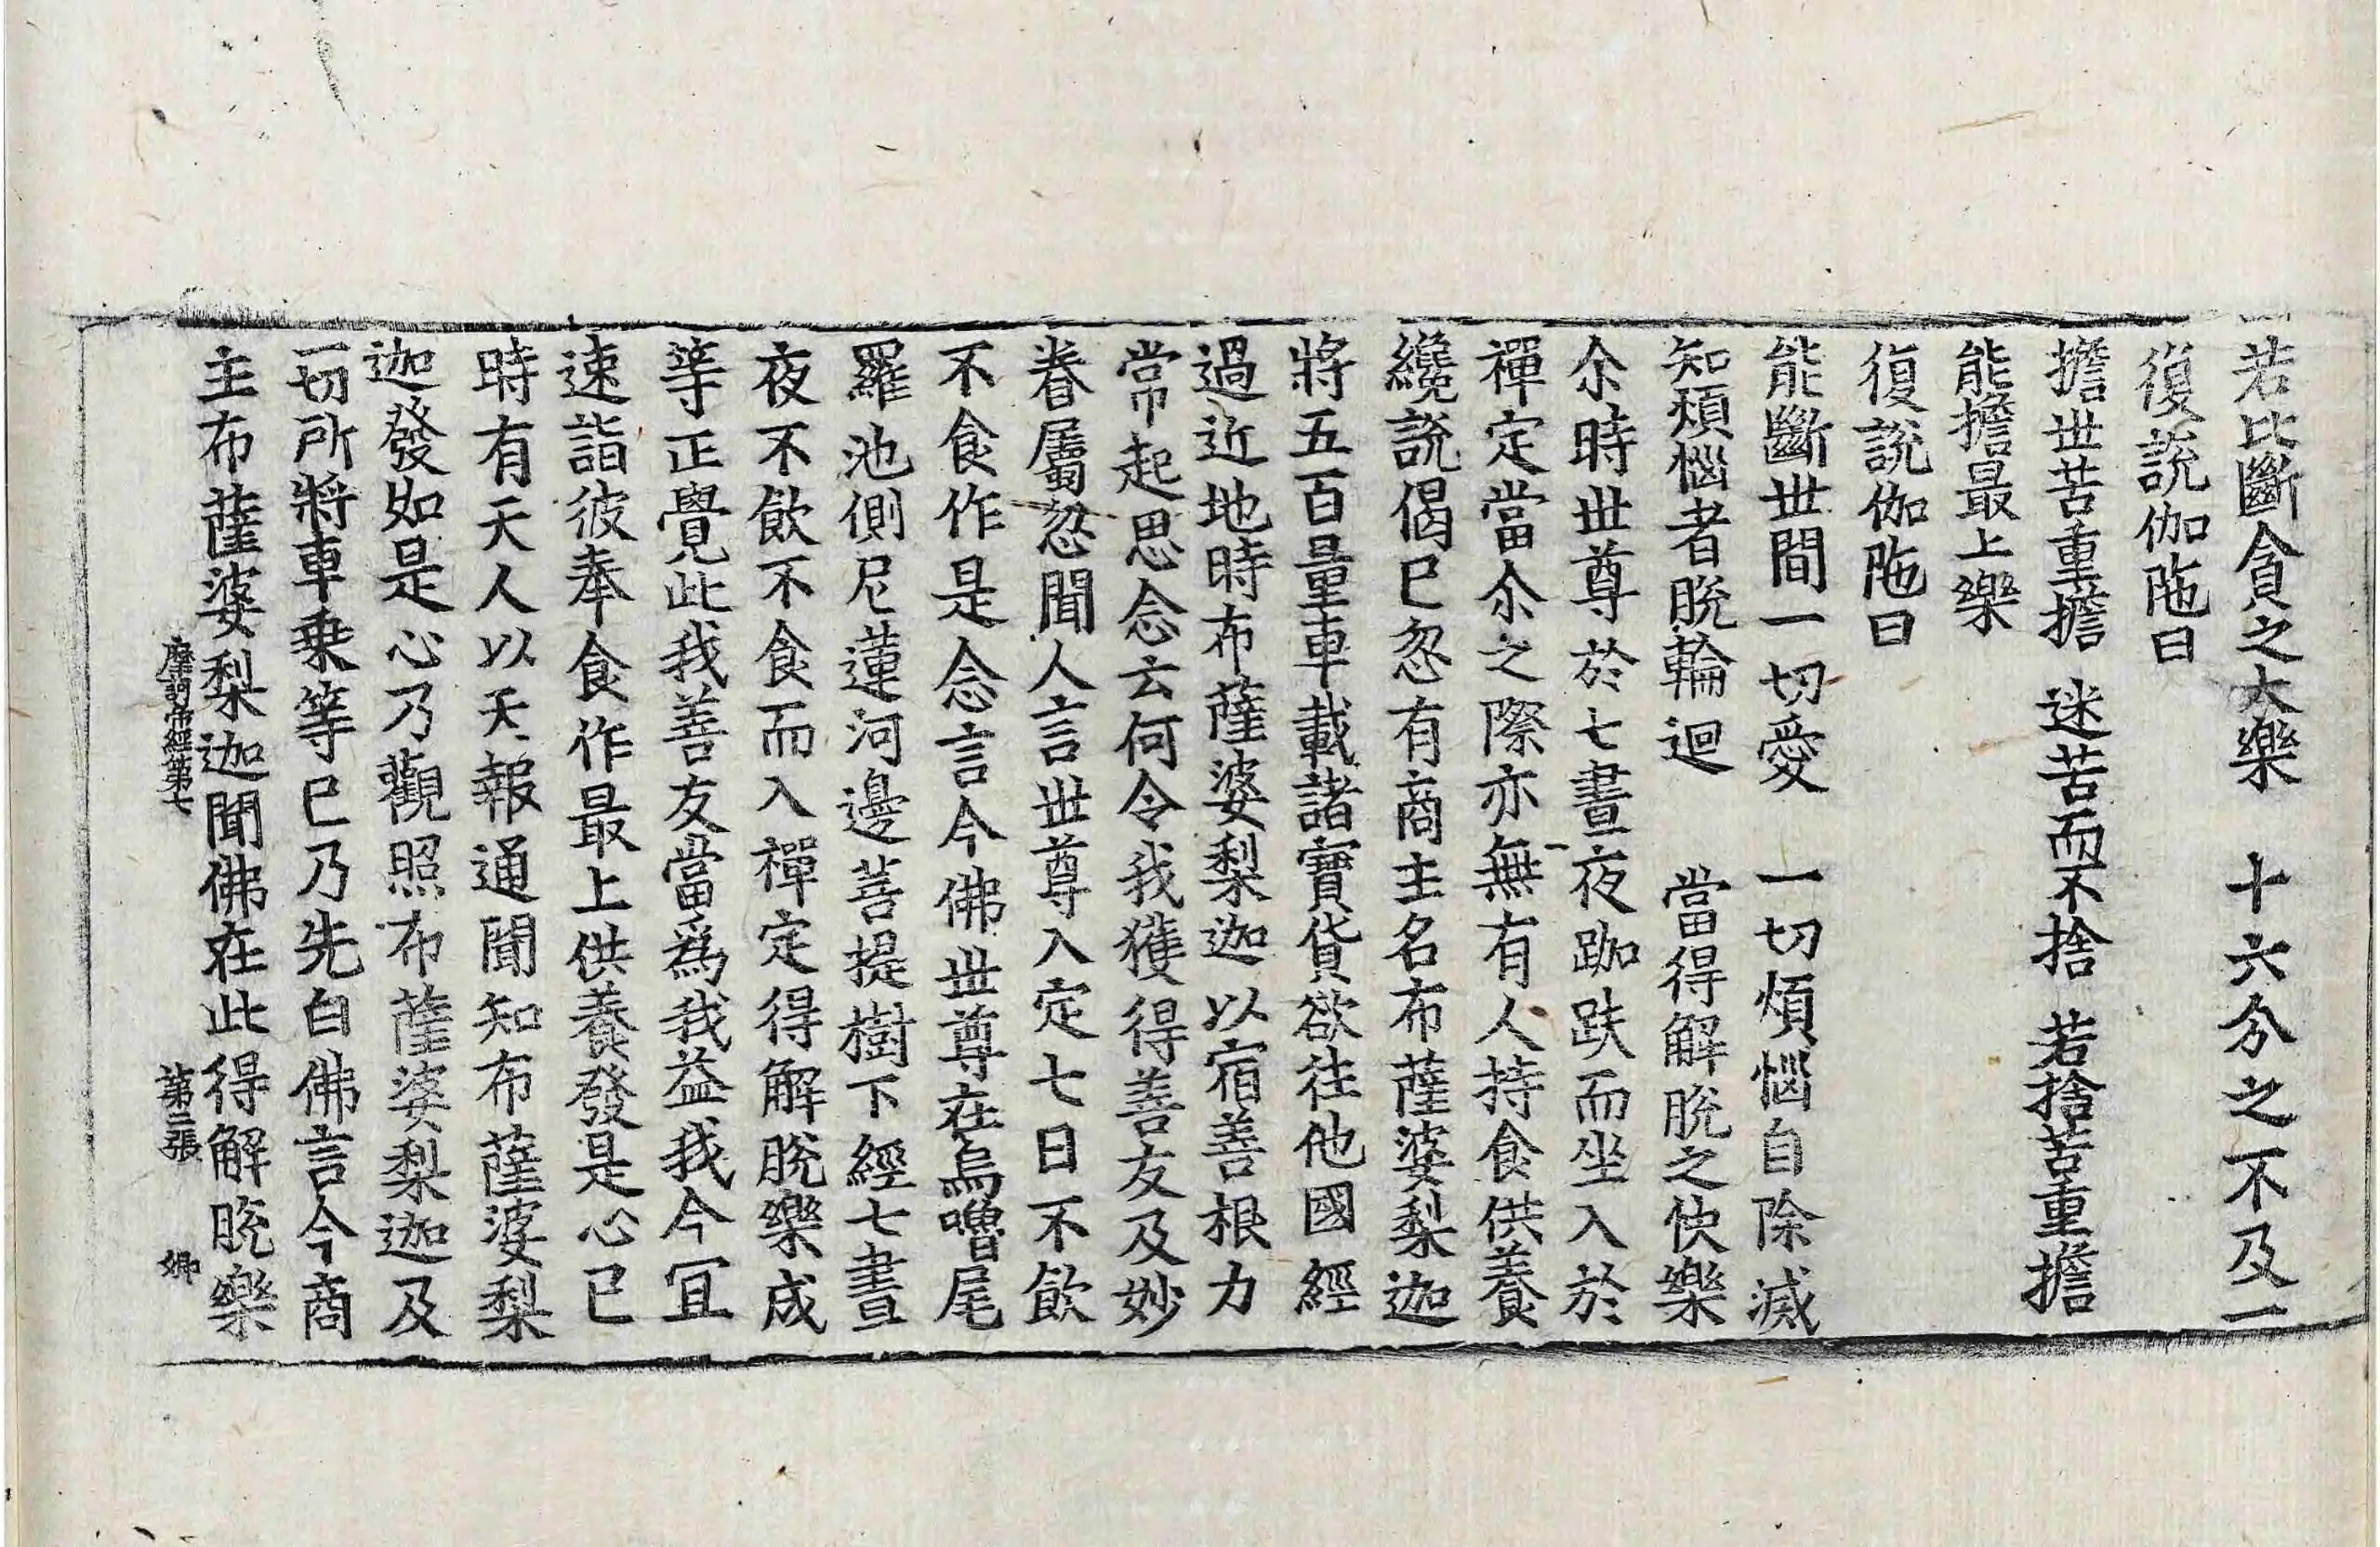 若比斷貪之大樂　十六分之不及一
復說伽陁曰
擔世苦重擔　迷苦而不捨　若捨苦重擔
能擔最上樂
復說伽陁曰
能斷世間一切愛　一切煩惱自除滅
知煩惱者脫輪迴　當得解脫之快樂
尒時世尊於七晝夜跏趺而坐入於
禪定當尒之際亦無有人持食供養
纔說偈已忽有商主名布薩婆梨迦
將五百量車載諸寶貨欲往他國經
過近地時布薩婆梨迦以宿善根力
常起思念云何令我獲得善友及妙
眷屬忽聞人言世尊入定七日不飲
不食作是念言今佛世尊在烏嚕尾
羅池側尼蓮河邊菩提樹下經七晝
夜不飲不食而入禪定得解脫樂成
等正覺此我善友當為我益我今冝
速詣彼奉食作最上供養發是心已
時有天人以天報通聞知布薩婆梨
迦發如是心乃觀照布薩婆梨迦及
一切所將車乗等已乃先白佛言今商
主布薩婆梨迦聞佛在此得解脫樂
摩訶帝經第七　第三張